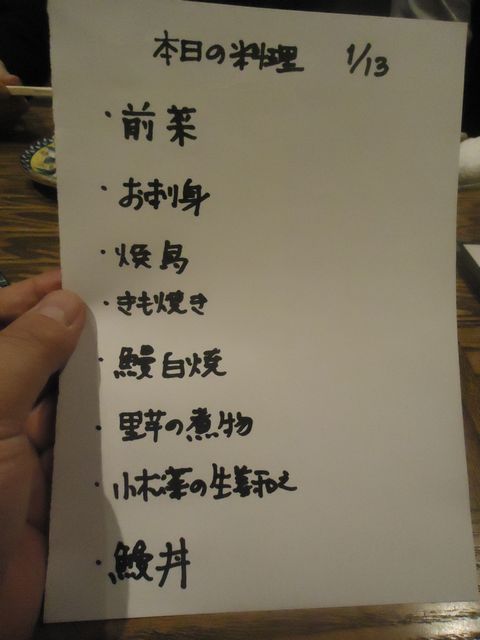 本日の料理 1/13
・前菜
・お刺身
・焼鳥
・きも焼き
・鰻白焼
・里芋の煮物
・小松菜の生姜和え
・鰻丼